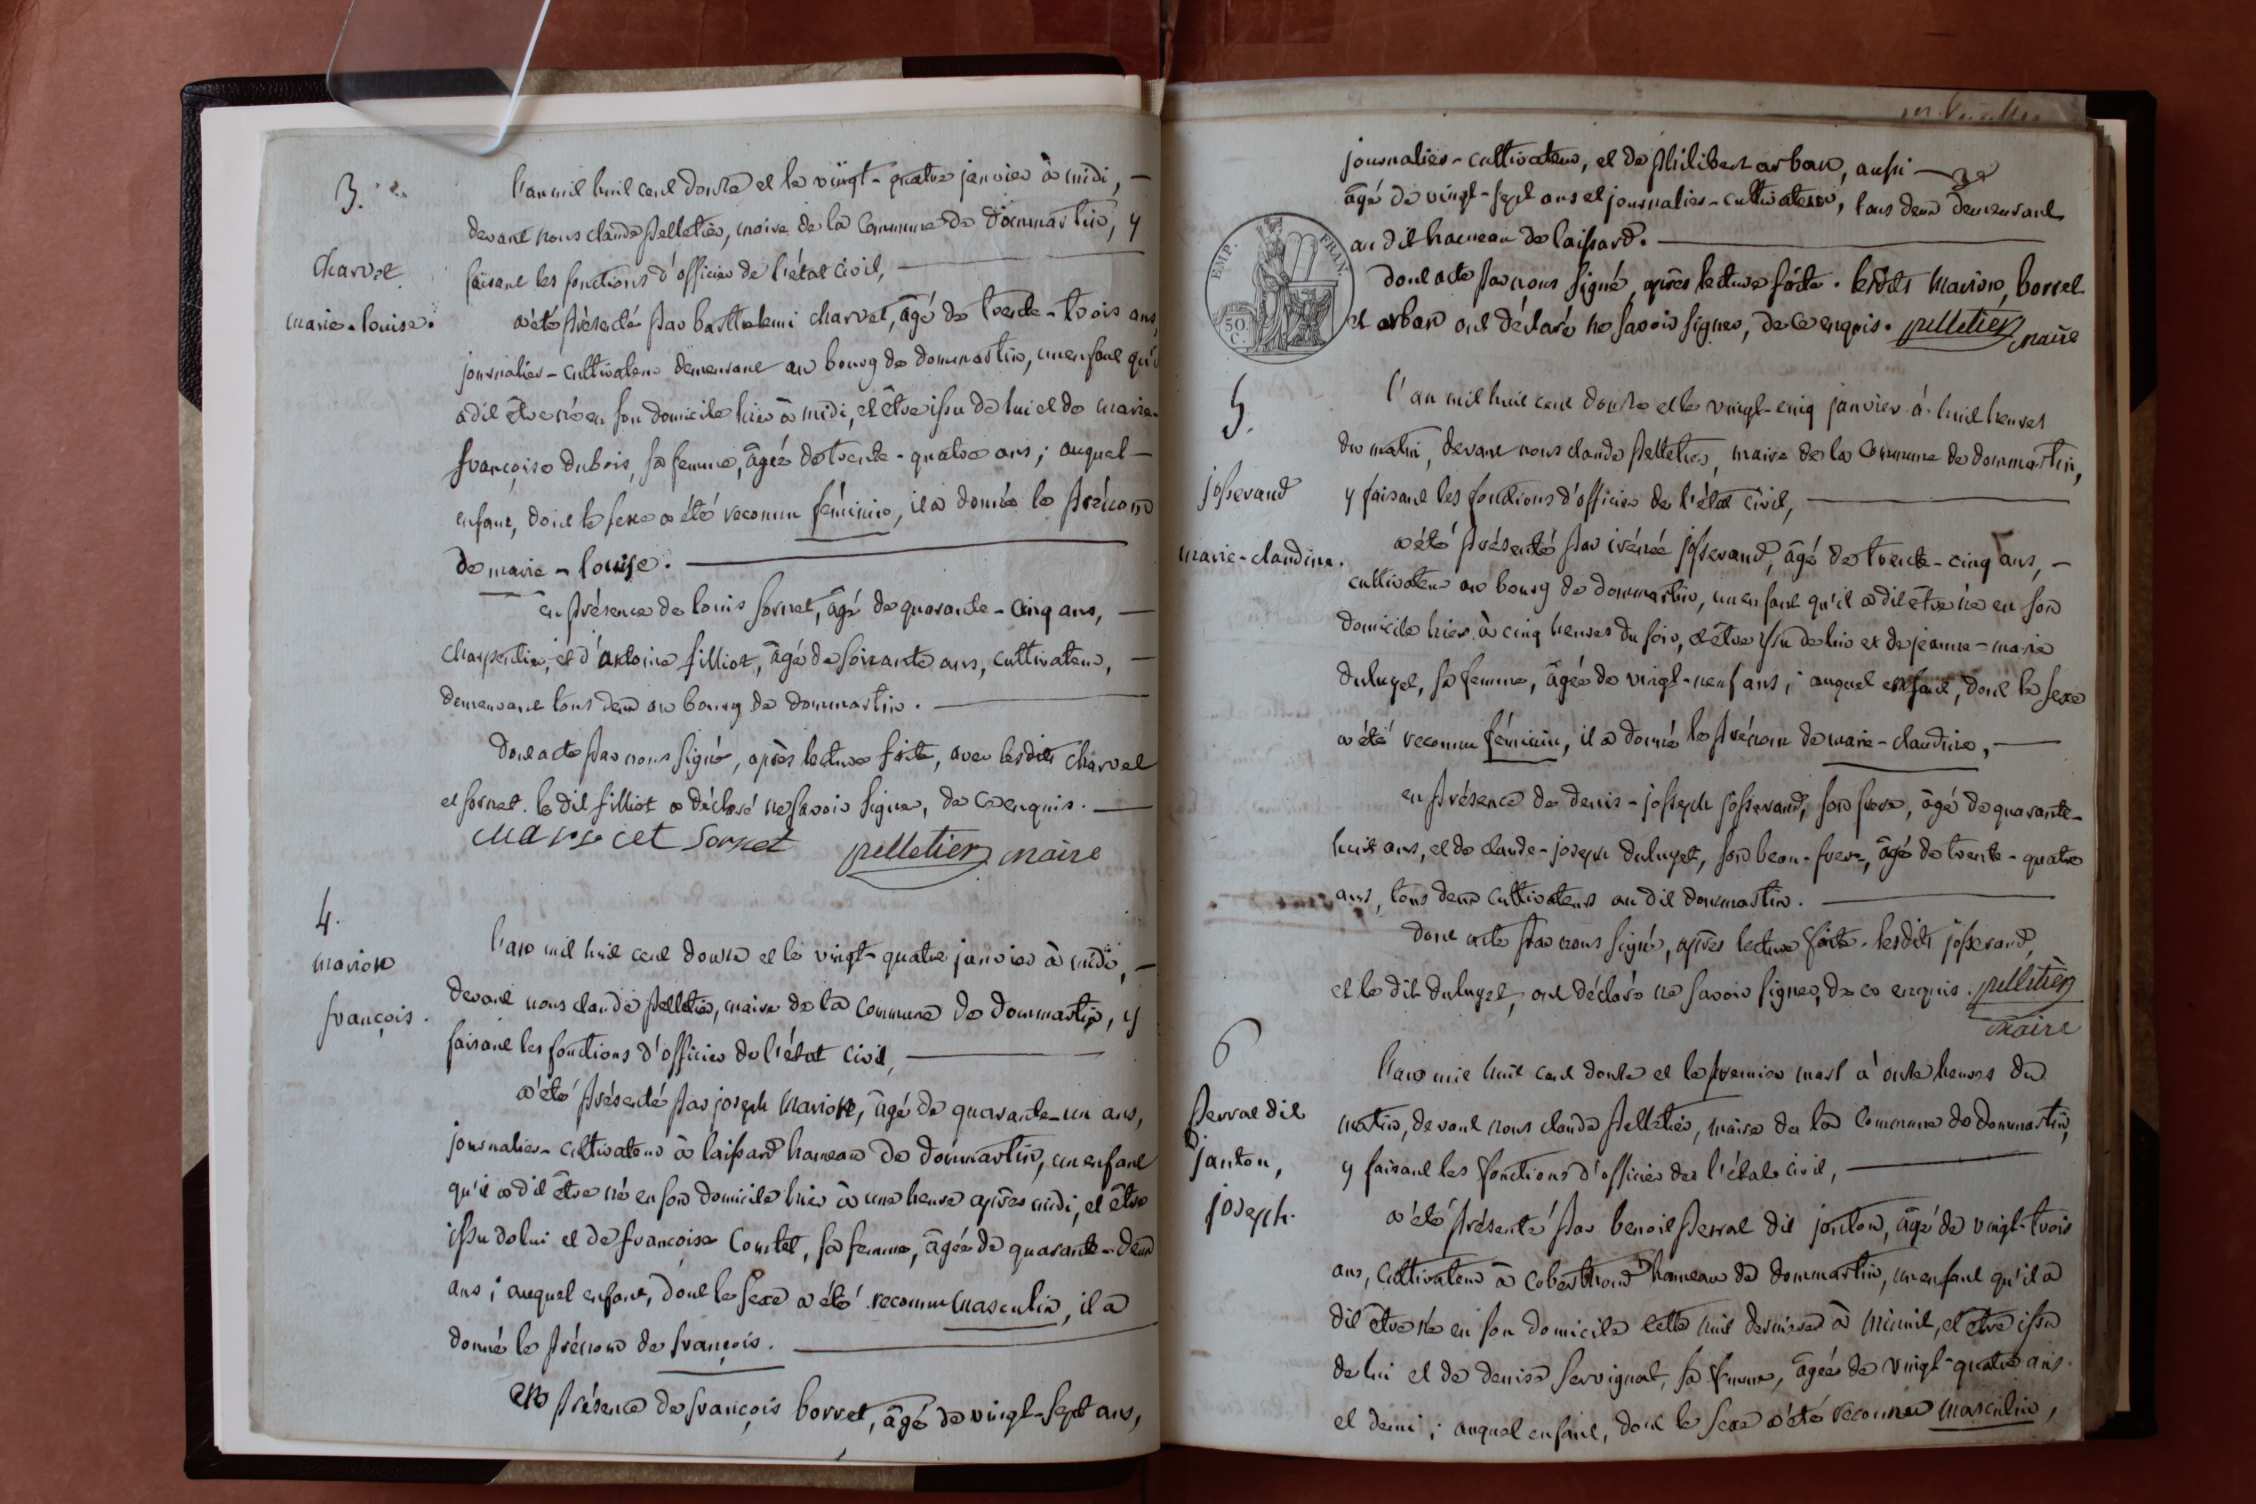 3.
charvet
marie-louise.
l'an mil huit cent douze et le vingt-quatre janvier à midi,
devant nous claude pelletier, maire de la commune de dommartin, y
faisant les fonctions d'officier de l'état civil,
a été présenté par barthelemi charvet, âgé de trente-trois ans,
journalier-cultivateur demeurant au bourg de dommartin, un enfant qu'il
a dit être né en son domicile hier à midi, et être issu de lui et de marie-
françoise dubois, sa femme, âgée de trente-quatre ans; auquel
enfant, dont le sexe a été reconnu féminin, il a donné le prénom
de marie-louise.
en présence de louis sornet, âgé de quarante-cinq ans,
charpentier, et d'antoine filliot, âgé de soixante ans, cultivateur,
demeurant tous deux au bourg de dommartin.
dont acte par nous signé, après lecture faite, avec lesdits charvet
et sornet. le dit filliot a déclaré ne savoir signer, de ce enquis.
sornet pelletier maire
4.
marion
françois.
l'an mil huit cent douze et le vingt-quatre janvier à midi,
devant nous claude pelletier, maire de la commune de dommartin, y
faisant les fonctions d'officier de l'état civil,
a été présenté par joseph marion, âgé de quarante-un ans,
journalier-cultivateur à laissard hameau de dommartin, un enfant
qu'il a dit être né en son domicile hier à une heure après midi, et être
issu de lui et de françoise comtet, sa femme, âgée de quarante-deux
ans; auquel enfant, dont le sexe a été reconnu masculin, il a
donné le prénom de françois.
en présence de françois borret, âgé de vingt-sept ans,
journalier-cultivateur, et de philibert arban, aussi
âgé de vingt-sept ans et journalier-cultivateur, tous deux demeurant
au dit hameau de laissard.
EMP. FRAN.
50.
C.
dont acte par nous signé, après lecture faite. lesdits marion, borret
et arban ont déclaré ne savoir signer, de ce enquis. pelletier
maire
5.
josserand
marie-claudine.
l'an mil huit cent douze et le vingt-cinq janvier à huit heures
du matin, devant nous claude pelletier, maire de la commune de dommartin,
y faisant les fonctions d'officier de l'état civil,
a été présenté par irénée josserand, âgé de trente-cinq ans,
cultivateur au bourg de dommartin, un enfant qu'il a dit être né en son
domicile hier à cinq heures du soir, et être issu de lui et de jeanne-marie
duluyet, sa femme, âgée de vingt-neuf ans; auquel enfant, dont le sexe
a été reconnu féminin, il a donné le prénom de marie-claudine,
en présence de denis-joseph josserand, son frere, âgé de quarante-
huit ans, et de claude-joseph duluyet, son beau-frere, âgé de trente-quatre
ans, tous deux cultivateurs au dit dommartin.
dont acte par nous signé, après lecture faite. lesdits josserand,
et le dit duluyet, ont déclaré ne savoir signer, de ce enquis. pelletier
maire
6
perral dit
janton,
joseph.
l'an mil huit cent douze et le premier mars à onze heures du
matin, devant nous claude pelletier, maire de la commune de dommartin,
y faisant les fonctions d'officier de l'état civil,
a été présenté par benoit perral dit jonton, âgé de vingt-trois
ans, cultivateur à hameau de dommartin, un enfant qu'il a
dit être né en son domicile cette nuit derniere à minuit, et être issu
de lui et de denise servignat, sa femme, âgée de vingt-quatre ans
et demi; auquel enfant, dont le sexe a été reconnu masculin,